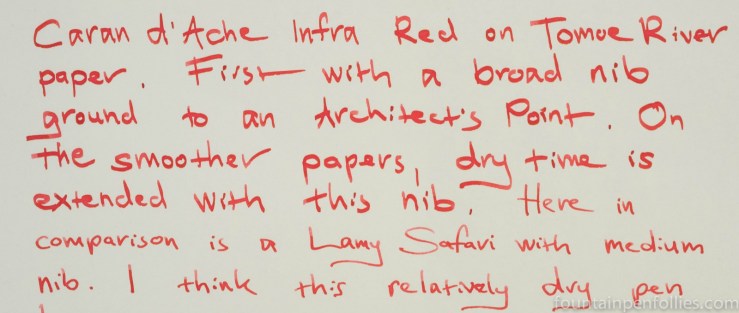 Caran d'Ache Infra Red on Tomoe River
paper. First with a broad nib
ground to an Architect's Point. On
the smoother papers, dry time is
extended with this nib. Here in
comparison is a Lamy Safari with medium
nib. I think this relatively dry pen
fountainpenfollies.com